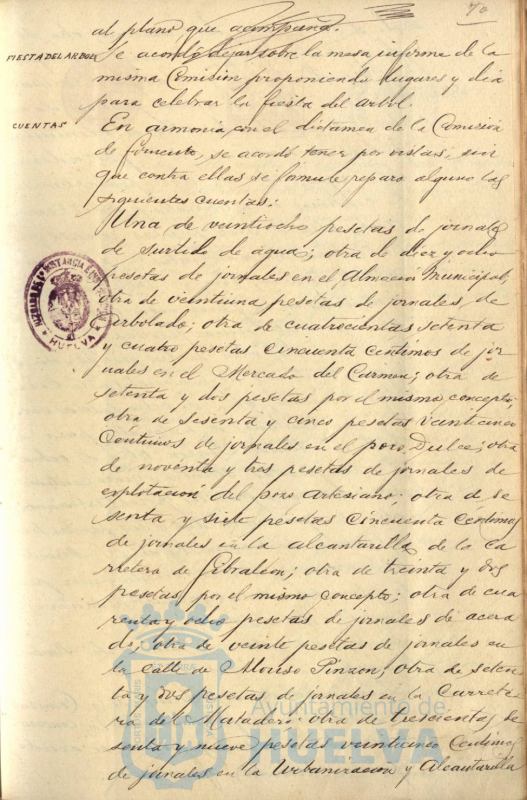 70
al plano que acompaña.
FIESTA DEL ARBOL
Se acordó dejar sobre la mesa informe de la
misma Comisión proponiendo lugares y dia
para celebrar la fiesta del arbol.
CUENTAS
En armonia con el dictamen de la Comision
de fomento, se acordó tener por vistas, sin
que contra ellas se formule reparo alguno las
siguientes cuentas:
Una de veintiocho pesetas de jornales
de surtido de agua; otra de diez y ocho
pesetas de jornales en el Almacen Municipal;
otra de veintiuna pesetas de jornales de
arbolado; otra de cuatrocientas setenta
y cuatro pesetas cincuenta centimos de jor
nales en el Mercado del Carmen; otra de
setenta y dos pesetas por el mismo concepto;
otra de sesenta y cinco pesetas veinticinco
centimos de jornales en el pozo Dulce; otra
de noventa y tres pesetas de jornales de
explotacion del pozo artesiano; otra de se
senta y siete pesetas cincuenta centimos
de jornales en la alcantarilla de la ca
rretera de Gibraleon; otra de treinta y dos
pesetas por el mismo concepto; otra de cua
renta y ocho pesetas de jornales de acera
do; otra de veinte pesetas de jornales en
la calle de Alonso Pinzon; otra de seten
ta y dos pesetas de jornales en la Carrete
ra de Matadero: otra de trescientas se
senta y nueve pesetas veinticinco centimos
de jornales en la Urbanizacion y Alcantarilla
HUELVA
Ayuntamiento de
HUELVA